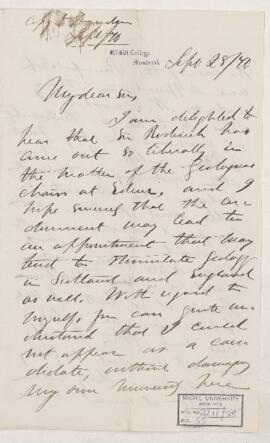 Sept /70
McGill College
Montreal, Sept 28/70
My dear Sir,
I am delighted to
hear that Sir Roderick has
come out so liberally in
the matter of the Geological
chair at Edinr, and I
hope sincerely that the
document may lead to
an appointment that may
tend to stimulate geology
in Scotland and England
as well. With regard to
myself, you can quite un-
derstand that I could
not appear as a can-
didate, without damaging
my own university here
McGILL UNIVERSITY
ARCHIVES
ACC. NO.
REF. 55